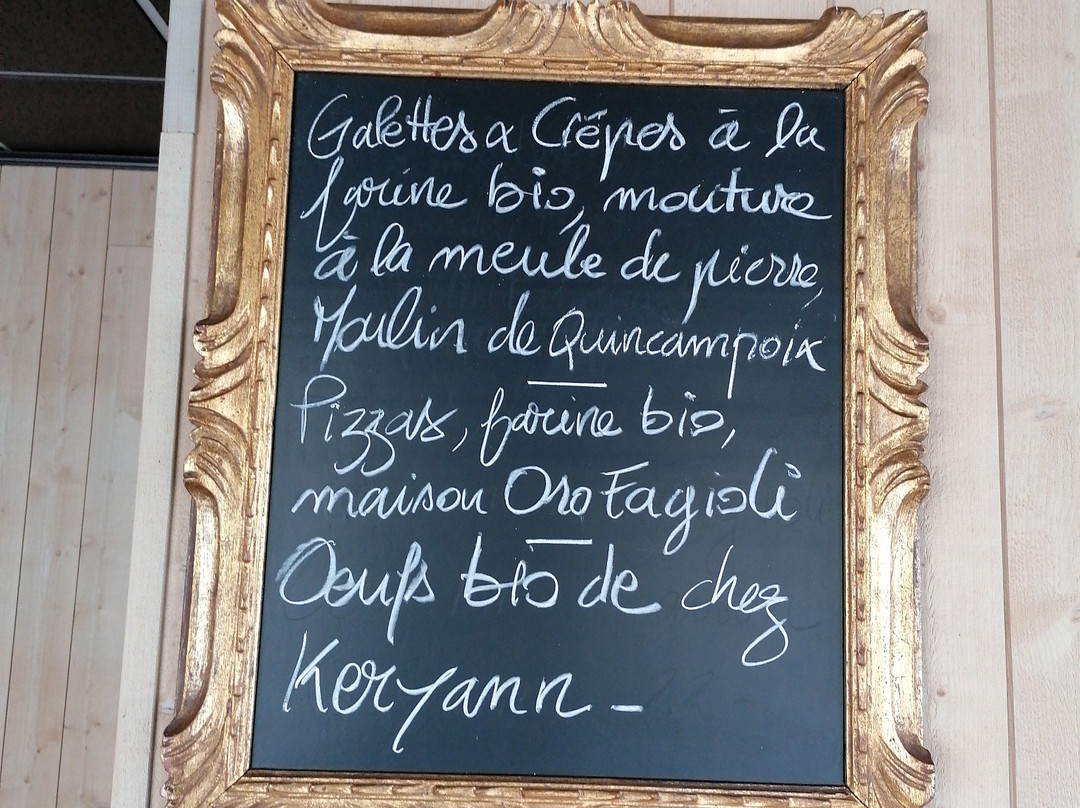 Galettes & Crêpes à la
farine bio, mouture
à la meule de pierre,
Moulin de Quincampoix
Pizzas, farine bio,
maison Oro Fagioli
Oeufs bio de chez
Keryann -